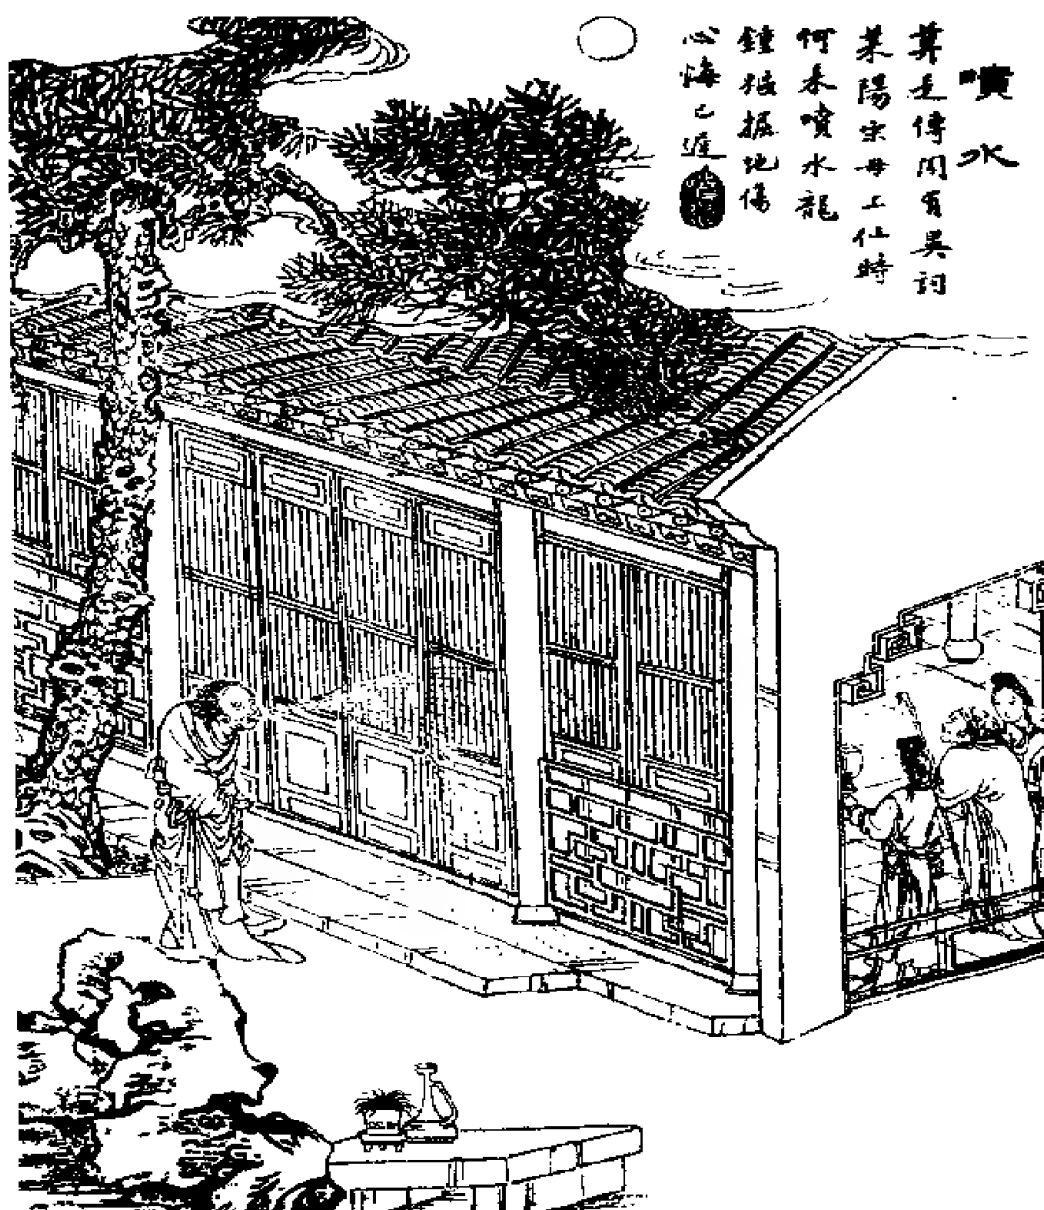 噴水
算是傳聞有異詞
萊陽宋母上仙時
何來噴水龍
鍾嫗掘地傷
心悔已遲